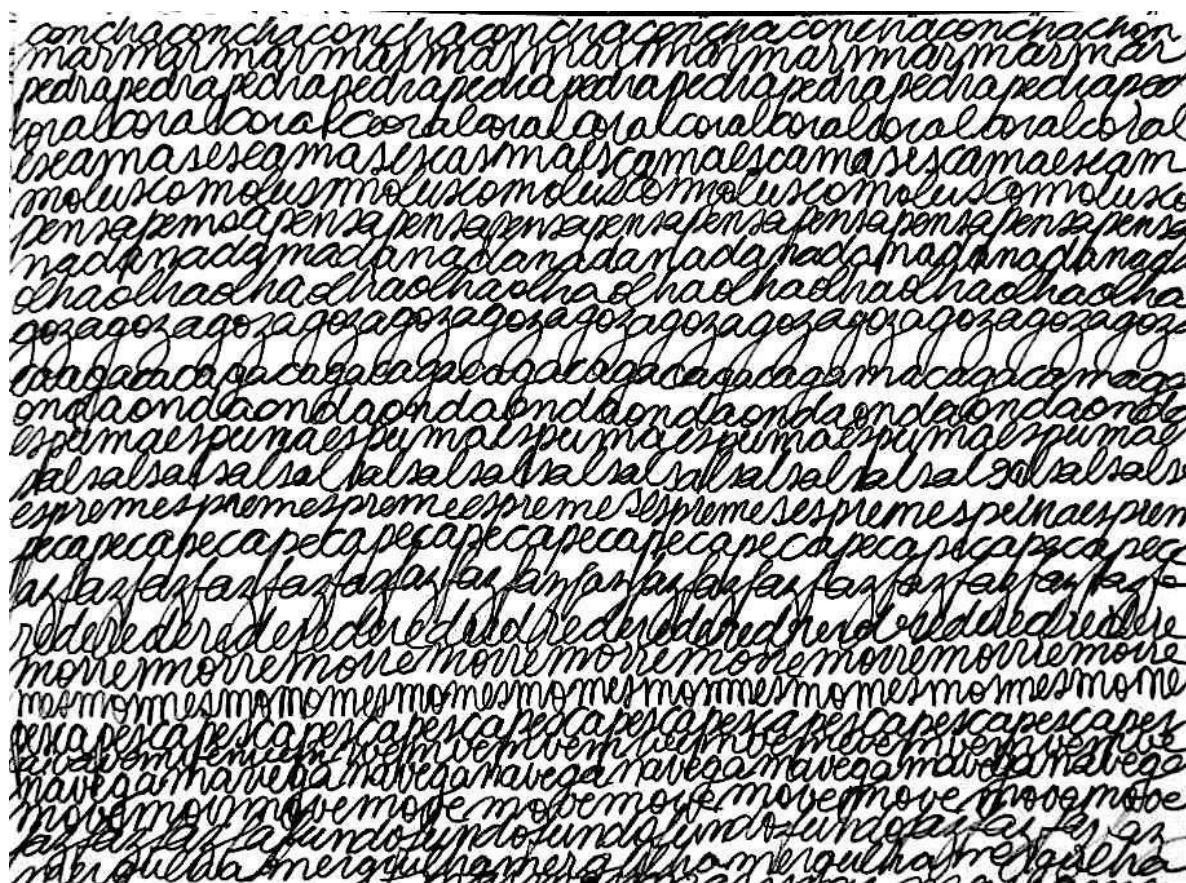 conchaconchaconchaconchaconchaconchaconchaconchachon
marmarmarmarmarmarmarmarmarmarmarmar
pedrapedrapedrapedrapedrapedrapedrapedrapedraped
coralcoralcoralcooralcoralcoralcoralcoralcoralcoralcoral
escamasescamasescasmaescamaescamasescamaescam
moluscomolusmoluscomoluscomoluscomoluscomolusco
pensapemsapensapensapensapensapensapensapensa
nadanadamadanadanadanadanadanadanadanada
olhaolhaolhaolhaolhaolhaolhaolhaolhaolhaolhaolha
gozagozagozagozagozagozagozagozagozagozagozagoza
ondaondaondaondaondaondaondaondaondaondaonda
espumaespumaespumaespumaespumaespumaespumaes
salsalsalsalsalsalsalsalsalsalsalsalsalsalsalsals
espremespremespremeespremesespremesespremespeinaesprem
pecapecapecapecapecapecapecapecapecapecapecapece
azfazfazfazfazfazfazfanfanfazfazfazfazfazfazfe
morremorremorremorremorremorremorremorremorre
mesmomesmomomesmomesmomesmommesmomesmosmesmome
pescapescapescapescapescapescapescapescapescapesc
navegamaveganaveganaveganavegamavegamaveganavega
movemovmovemovemovemovemovemovemovemove
fazfazfazfafundofundofundofundofundofazfazfazaz
mergulhamergulhamergulhamergulhamergulha